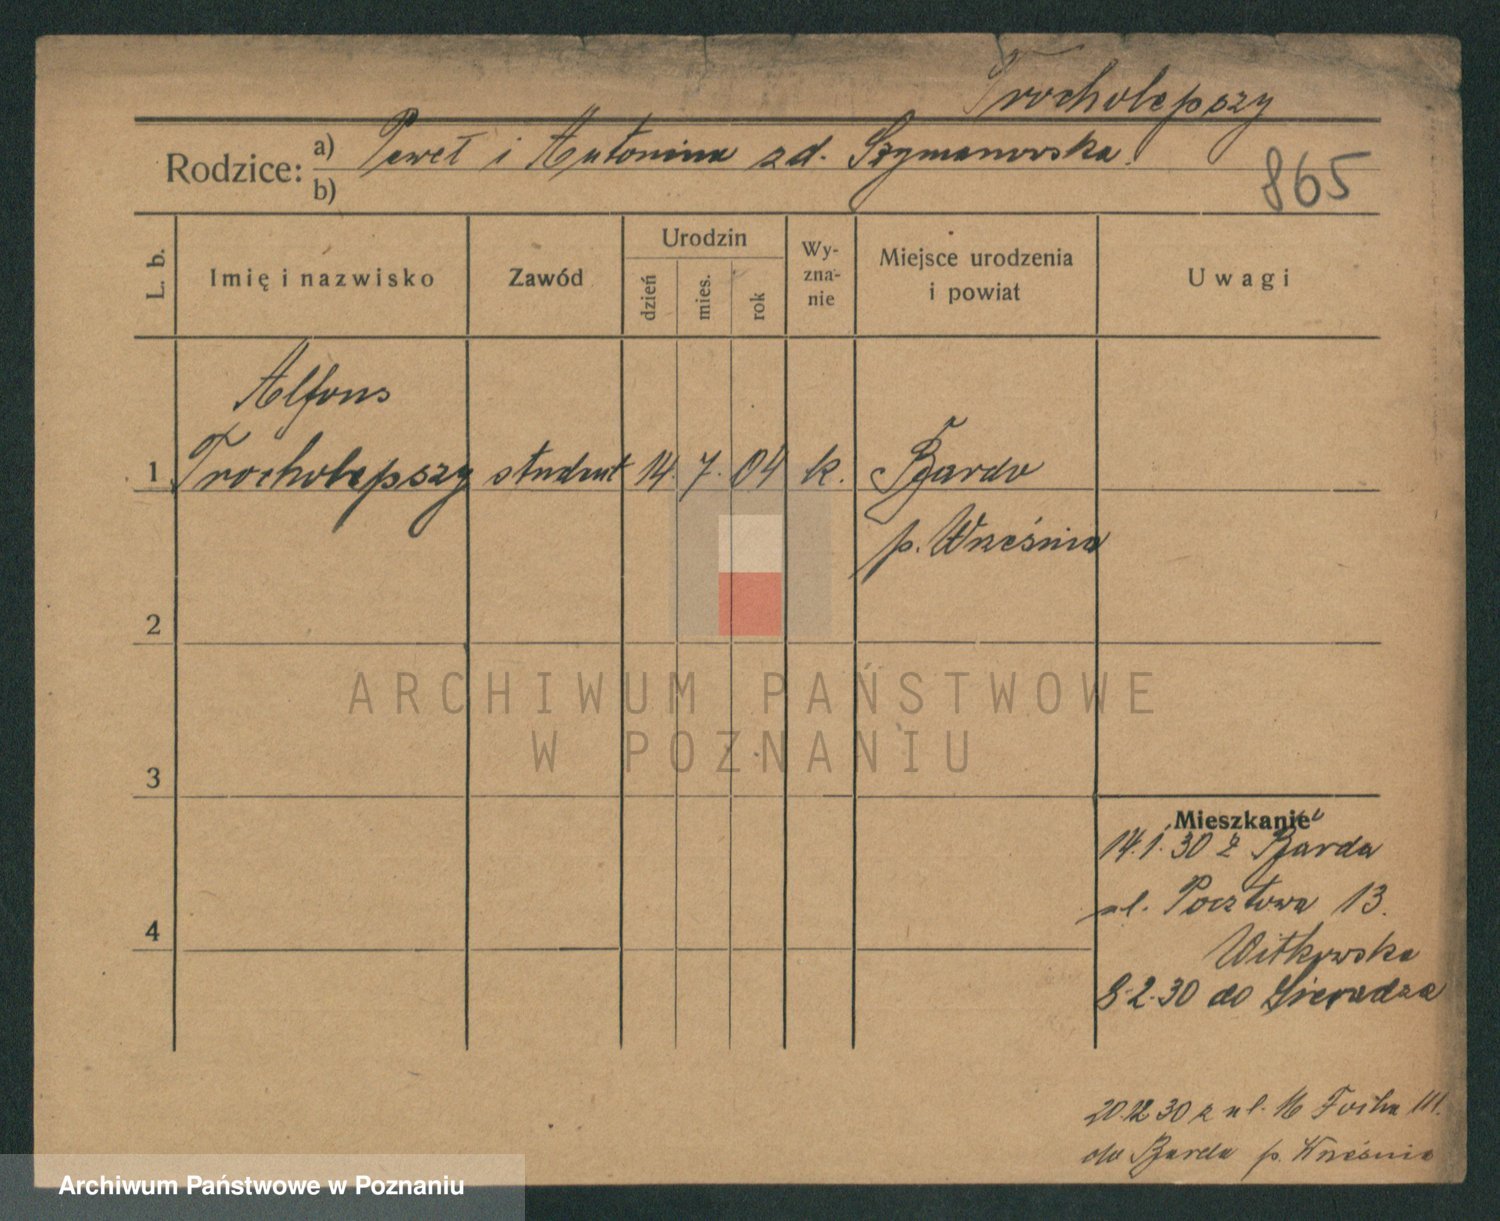 Trocholepszy
Rodzice: a) Paweł i Antonina zd. Szymanowska.
b)
865
L. b.
Imię i nazwisko
Zawód
Urodzin
dzień
mies.
rok
Wy-
zna-
nie
Miejsce urodzenia
i powiat
Uwagi
Alfons
1 Trocholepszy student 14. 7. 04 k. Bardo
p. Września
2
ARCHIWUM PAŃSTWOWE
W POZNANIU
3
Mieszkanie
14.1.30 z Barda
ul. Pocztowa 13.
4
Witkowska
8.2.30 do Sieradza
20.12 30 z ul. M Focha 111.
do Barda p. Września
Archiwum Państwowe w Poznaniu